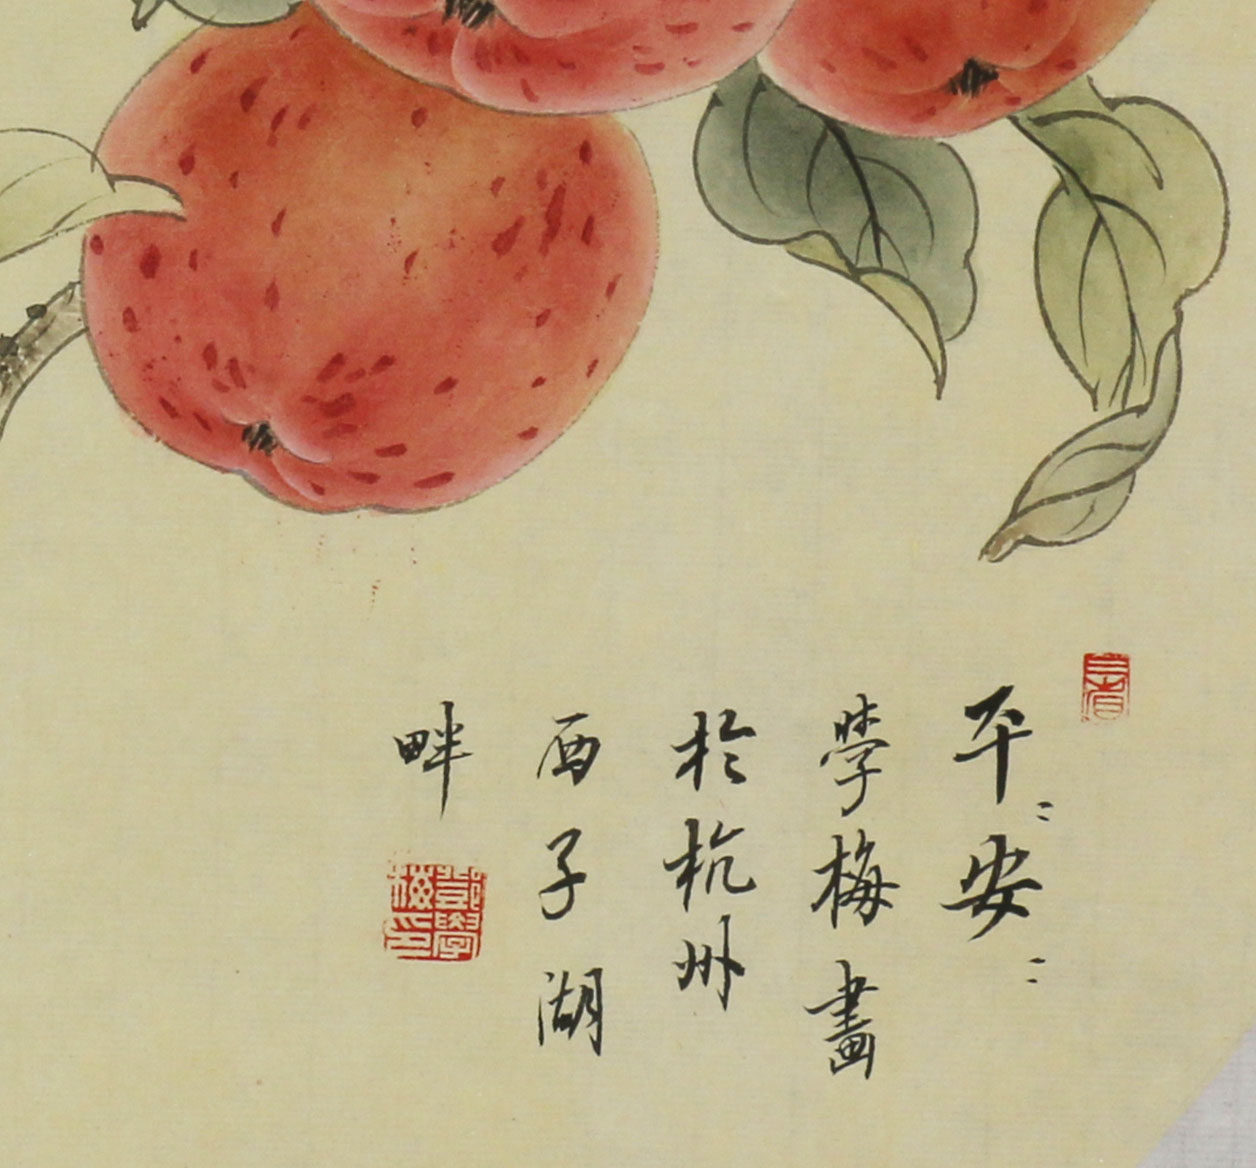 平〻安〻
學梅畫
於杭州
西子湖
畔
鄧學
梅印